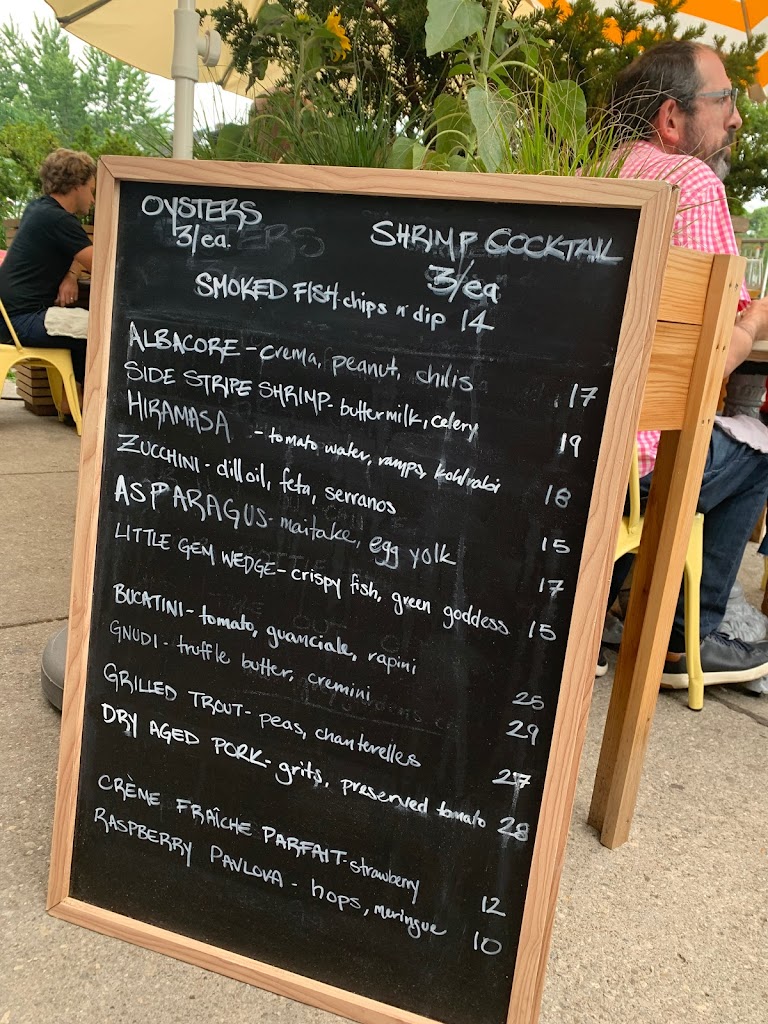 OYSTERS
3/ea.
SHRIMP COCKTAIL
3/ea
SMOKED FISH chips n' dip 14
ALBACORE - crema, peanut, chilis 17
SIDE STRIPE SHRIMP - buttermilk, celery 19
HIRAMASA - tomato water, ramps, kohlrabi 18
ZUCCHINI - dill oil, feta, serranos 15
ASPARAGUS - maitake, egg yolk 17
LITTLE GEM WEDGE - crispy fish, green goddess 15
BUCATINI - tomato, guanciale, rapini 25
GNUDI - truffle butter, cremini 29
GRILLED TROUT - peas, chanterelles 27
DRY AGED PORK - grits, preserved tomato 28
CRÈME FRAÎCHE PARFAIT - strawberry 12
RASPBERRY PAVLOVA - hops, meringue 10